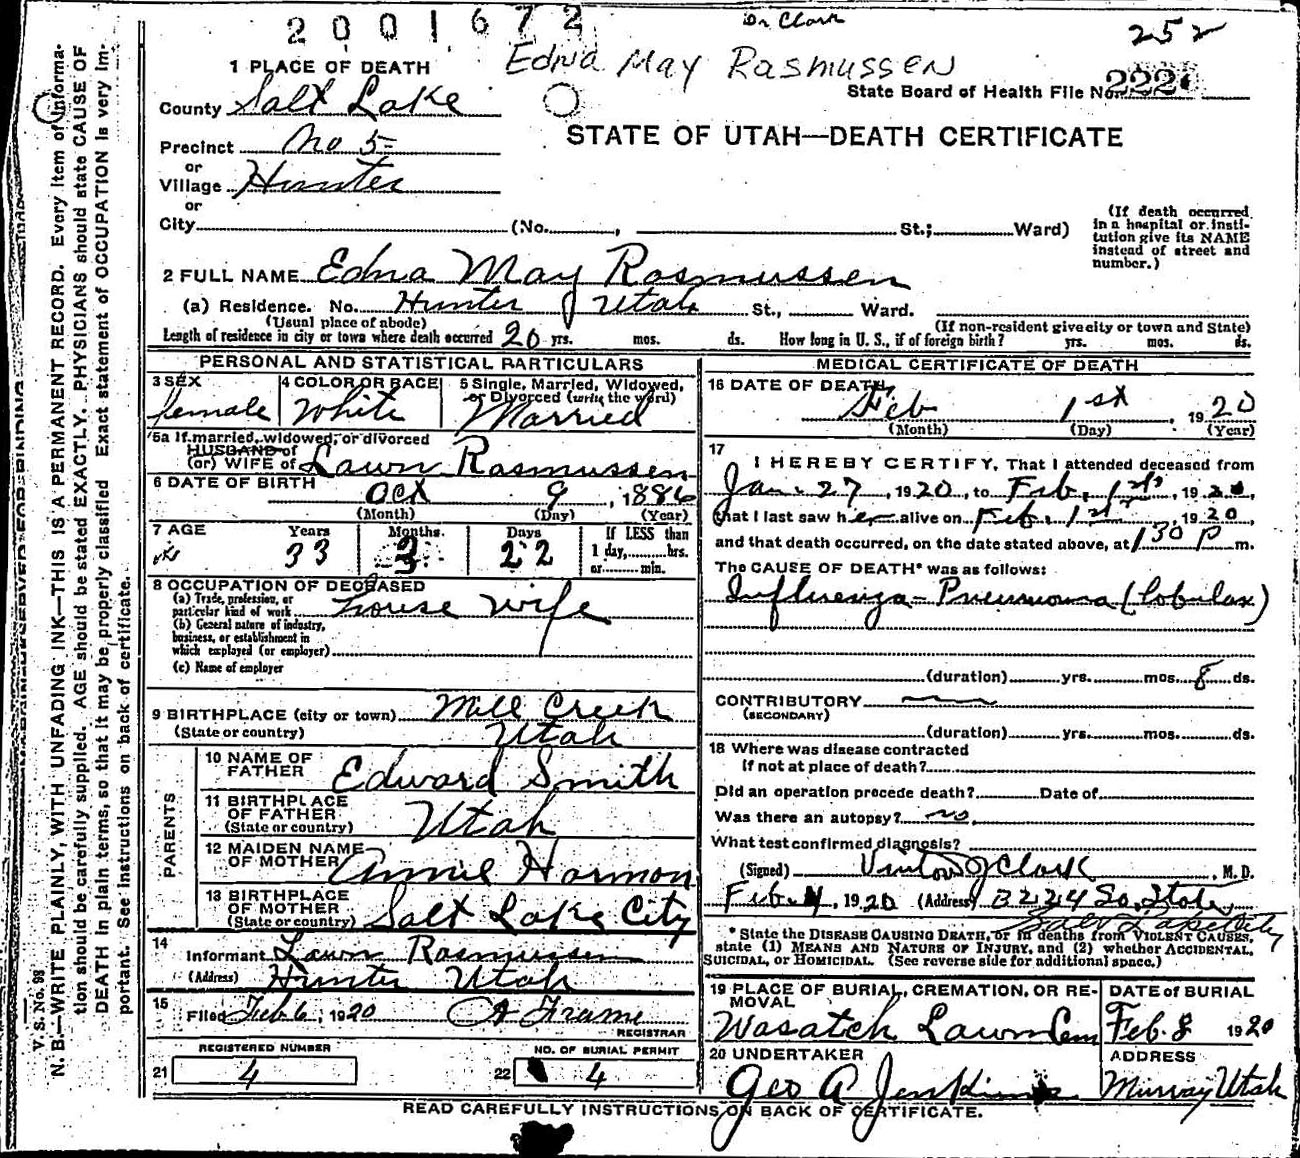 2001672
Dr Clark
252
Edna May Rasmussen
1 PLACE OF DEATH
State Board of Health File No. 222
County Salt Lake
STATE OF UTAH—DEATH CERTIFICATE
Precinct No 5
or
Village Hunter
or
City (No. , St.; Ward)
(If death occurred
in a hospital or insti-
tution give its NAME
instead of street and
number.)
2 FULL NAME Edna May Rasmussen
(a) Residence. No. Hunter Utah St., Ward.
(Usual place of abode) (If non-resident give city or town and State)
Length of residence in city or town where death occurred 20 yrs. mos. ds. How long in U. S., if of foreign birth? yrs. mos. ds.
PERSONAL AND STATISTICAL PARTICULARS
3 SEX
female
4 COLOR OR RACE
White
5 Single, Married, Widowed,
or Divorced (write the word)
Married
5a If married, widowed, or divorced
HUSBAND of
(or) WIFE of Lawn Rasmussen
6 DATE OF BIRTH Oct 9, 1886
(Month) (Day) (Year)
7 AGE Years Months Days If LESS than
33 3 22 1 day, hrs.
or min.
8 OCCUPATION OF DECEASED
(a) Trade, profession, or
particular kind of work house wife
(b) General nature of industry,
business, or establishment in
which employed (or employer)
(c) Name of employer
9 BIRTHPLACE (city or town) Mill Creek
(State or country) Utah
PARENTS
10 NAME OF
FATHER Edward Smith
11 BIRTHPLACE
OF FATHER
(State or country) Utah
12 MAIDEN NAME
OF MOTHER Annie Harmon
13 BIRTHPLACE
OF MOTHER
(State or country) Salt Lake City
14
Informant Lawn Rasmussen
(Address) Hunter Utah
15
Filed Feb 6, 1920 A Frame
REGISTRAR
REGISTERED NUMBER NO. OF BURIAL PERMIT
21 4 22 4
MEDICAL CERTIFICATE OF DEATH
16 DATE OF DEATH
Feb 1st 1920
(Month) (Day) (Year)
17
I HEREBY CERTIFY, That I attended deceased from
Jan. 27, 1920, to Feb. 1st, 1920,
that I last saw her alive on Feb. 1st, 1920,
and that death occurred, on the date stated above, at 1 30 P m.
The CAUSE OF DEATH* was as follows:
Influenza-Pneumonia (Lobular)
(duration) yrs. mos. 8 ds.
CONTRIBUTORY
(SECONDARY)
(duration) yrs. mos. ds.
18 Where was disease contracted
If not at place of death?
Did an operation precede death? Date of
Was there an autopsy? no.
What test confirmed diagnosis?
(Signed) Vinton J Clark, M. D.
Feb. 4, 1920 (Address) 3224 So. State
Salt Lake City
* State the DISEASE CAUSING DEATH, or in deaths from VIOLENT CAUSES,
state (1) MEANS AND NATURE OF INJURY, and (2) whether ACCIDENTAL,
SUICIDAL, or HOMICIDAL. (See reverse side for additional space.)
19 PLACE OF BURIAL, CREMATION, OR RE-
MOVAL
Wasatch Lawn Cem
DATE of BURIAL
Feb. 8 1920
20 UNDERTAKER
Geo A Jenkins
ADDRESS
Murray Utah
READ CAREFULLY INSTRUCTIONS ON BACK OF CERTIFICATE.
V. S. No. 98
N. B.—WRITE PLAINLY, WITH UNFADING INK—THIS IS A PERMANENT RECORD. Every item of informa-
tion should be carefully supplied. AGE should be stated EXACTLY. PHYSICIANS should state CAUSE OF
DEATH in plain terms, so that it may be properly classified. Exact statement of OCCUPATION is very im-
portant. See instructions on back of certificate.